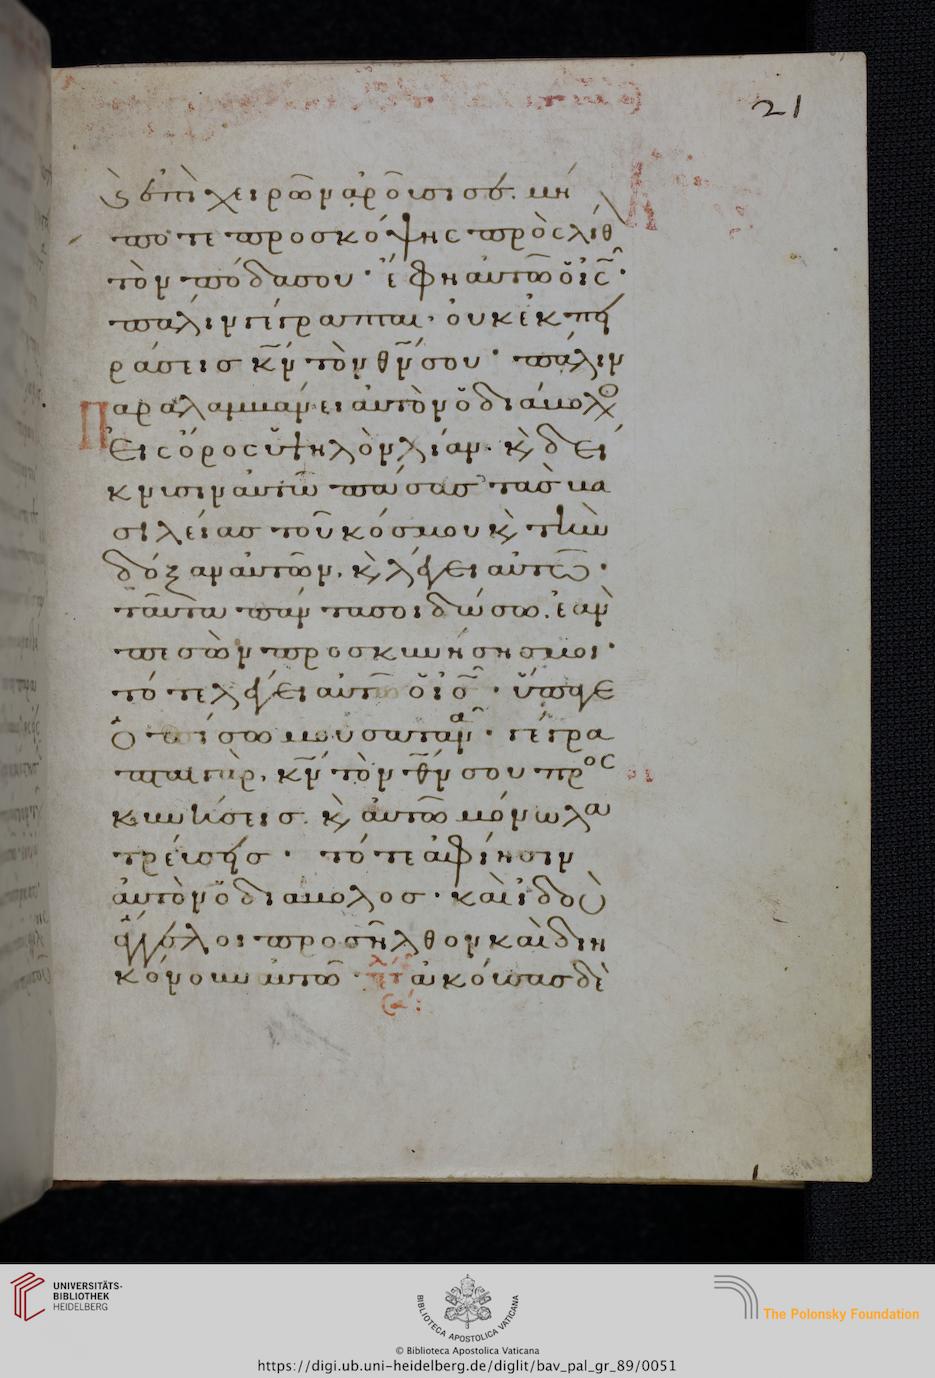 21
ϗ ἐπὶ χειρῶν ἀροῦσι σε. μή
ποτε προσκόψης πρὸς λίθ
τὸν πόδα σου · ἔφη αὐτῶ ὁ ις ·
πάλιν γέγραπται · οὐκ ἐκπει
ράσεις κν τὸν θν σου · πάλιν
Παραλαμβάνει αὐτὸν ὁ διάβολος
εἰς ὄρος ὑψηλὸν λίαν · ϗ δεί
κνυσιν αὐτῶ πάσας τὰς βα
σιλείας τοῦ κόσμου ϗ τὴν
δόξαν αὐτῶν, ϗ λέγει αὐτῶ ·
ταῦτα πάντα σοι δώσω. ἐὰν
πεσὼν προσκυνήσης μοι ·
τότε λέγει αὐτῶ ὁ ις · ὕπαγε
ὀπίσω μου σατανᾶ · γέγρα
πται γὰρ, κν τὸν θν σου προς
κυνήσεις. ϗ αὐτῶ μόνω λα
τρεύσεις · τότε ἀφίησιν
αὐτὸν ὁ διάβολος · καὶ ἰδοὺ
ἄγγελοι προσῆλθον καὶ διη
κόνουν αὐτῶ · ἀκούσας δὲ
UNIVERSITÄTS-
BIBLIOTHEK
HEIDELBERG
BIBLIOTECA APOSTOLICA VATICANA
The Polonsky Foundation
© Biblioteca Apostolica Vaticana
https://digi.ub.uni-heidelberg.de/diglit/bav_pal_gr_89/0051